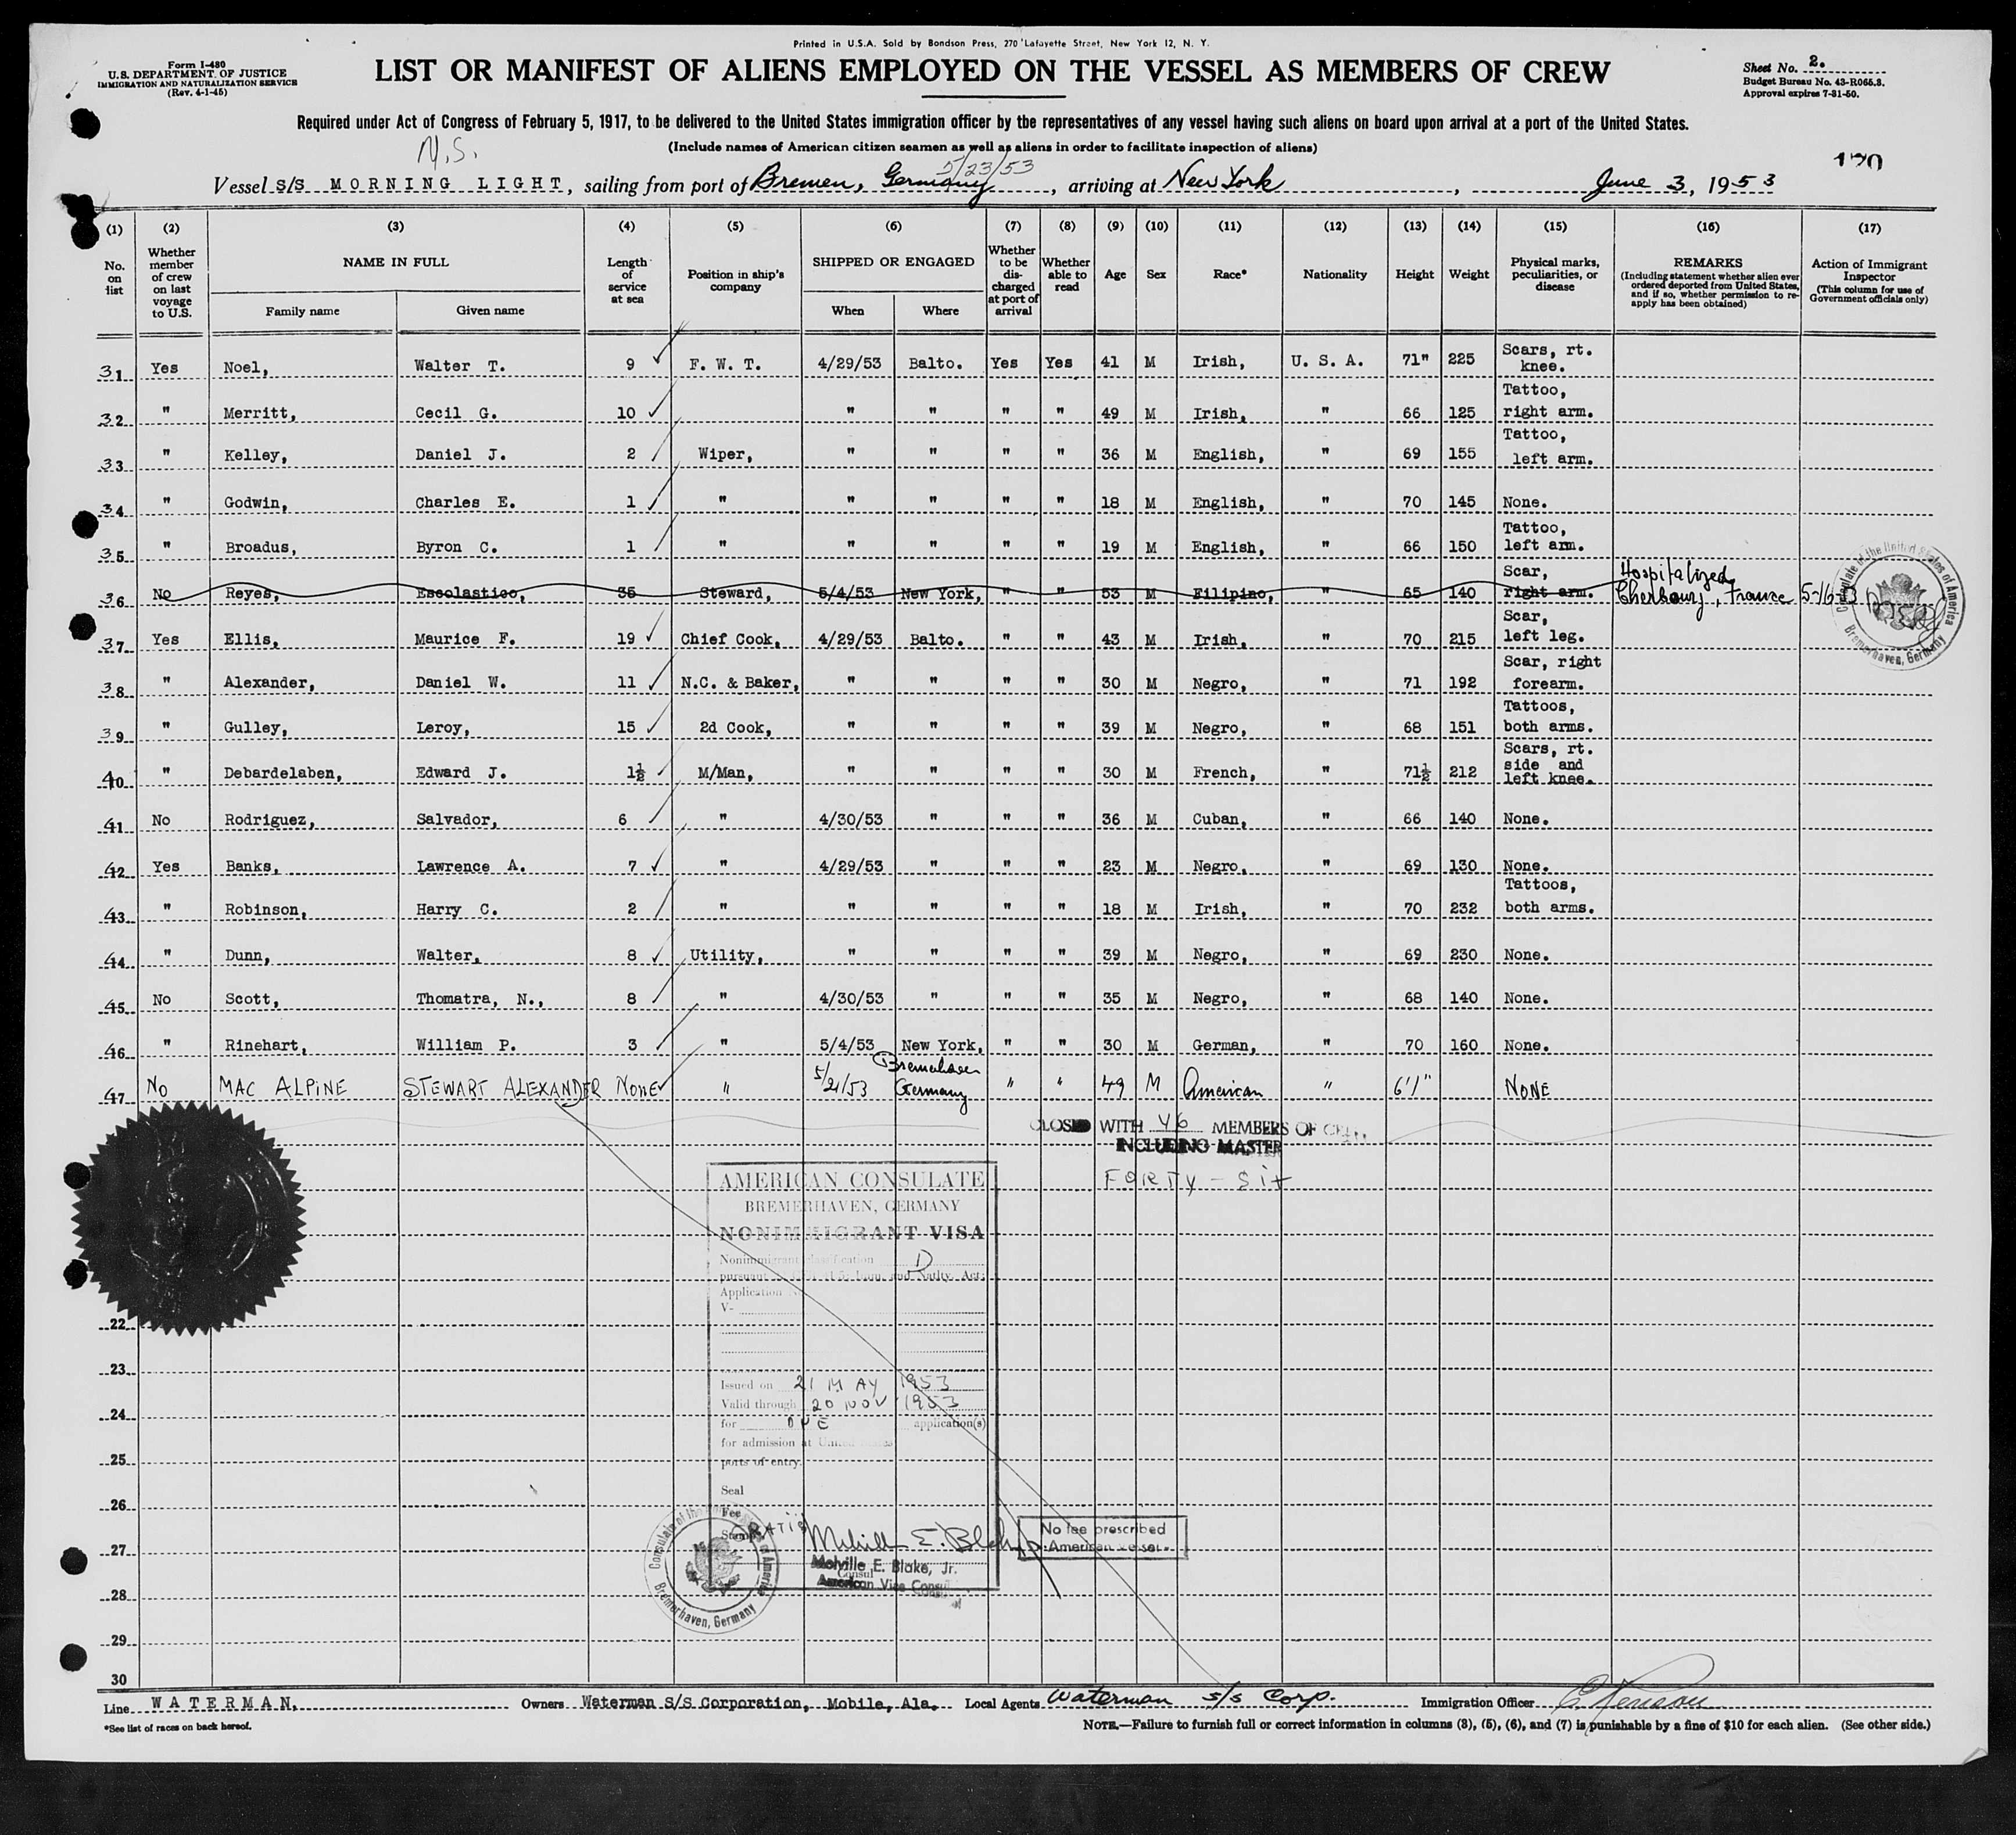 Printed in U.S.A. Sold by Bondson Press, 270 Lafayette Street, New York 12, N. Y.
Form I-480
U.S. DEPARTMENT OF JUSTICE
IMMIGRATION AND NATURALIZATION SERVICE
(Rev. 4-1-45)
LIST OR MANIFEST OF ALIENS EMPLOYED ON THE VESSEL AS MEMBERS OF CREW
Sheet No. 2.
Budget Bureau No. 43-R065.3.
Approval expires 7-31-50.
Required under Act of Congress of February 5, 1917, to be delivered to the United States immigration officer by the representatives of any vessel having such aliens on board upon arrival at a port of the United States.
(Include names of American citizen seamen as well as aliens in order to facilitate inspection of aliens)
N.S.
5/23/53
Vessel S/S MORNING LIGHT, sailing from port of Bremen, Germany, arriving at New York, June 3, 1953
(1) (2) (3) (4) (5) (6) (7) (8) (9) (10) (11) (12) (13) (14) (15) (16) (17)
No. on list
Whether member of crew on last voyage to U.S.
NAME IN FULL
Family name Given name
Length of service at sea
Position in ship's company
SHIPPED OR ENGAGED
When Where
Whether to be discharged at port of arrival
Whether able to read
Age Sex Race* Nationality Height Weight
Physical marks, peculiarities, or disease
REMARKS
(Including statement whether alien ever ordered deported from United States, and if so, whether permission to reapply has been obtained)
Action of Immigrant Inspector
(This column for use of Government officials only)
31 Yes Noel, Walter T. 9 F. W. T. 4/29/53 Balto. Yes Yes 41 M Irish, U. S. A. 71" 225 Scars, rt. knee.
32 " Merritt, Cecil G. 10 " " " " 49 M Irish, " 66 125 Tattoo, right arm.
33 " Kelley, Daniel J. 2 Wiper, " " " " 36 M English, " 69 155 Tattoo, left arm.
34 " Godwin, Charles E. 1 " " " " " 18 M English, " 70 145 None.
35 " Broadus, Byron C. 1 " " " " " 19 M English, " 66 150 Tattoo, left arm.
36 No Reyes, Escolastico, 35 Steward, 5/4/53 New York, " " 53 M Filipino, " 65 140 Scar, right arm. Hospitalized, Cherbourg, France 5-16-53
37 Yes Ellis, Maurice F. 19 Chief Cook, 4/29/53 Balto. " " 43 M Irish, " 70 215 Scar, left leg.
38 " Alexander, Daniel W. 11 N.C. & Baker, " " " " 30 M Negro, " 71 192 Scar, right forearm.
39 " Gulley, Leroy, 15 2d Cook, " " " " 39 M Negro, " 68 151 Tattoos, both arms.
40 " Debardelaben, Edward J. 1½ M/Man, " " " " 30 M French, " 71½ 212 Scars, rt. side and left knee.
41 No Rodriguez, Salvador, 6 " 4/30/53 " " " 36 M Cuban, " 66 140 None.
42 Yes Banks, Lawrence A. 7 " 4/29/53 " " " 23 M Negro, " 69 130 None.
43 " Robinson, Harry C. 2 " " " " " 18 M Irish, " 70 232 Tattoos, both arms.
44 " Dunn, Walter, 8 Utility, " " " " 39 M Negro, " 69 230 None.
45 No Scott, Thomatra, N., 8 " 4/30/53 " " " 35 M Negro, " 68 140 None.
46 " Rinehart, William P. 3 " 5/4/53 New York, " " 30 M German, " 70 160 None.
47 No MAC ALPINE STEWART ALEXANDER NONE " 5/21/53 Bremerhaven Germany " " 49 M American " 6'1" NONE
Consulate of the United States of America
Bremerhaven, Germany
CLOSED WITH 46 MEMBERS OF CREW
INCLUDING MASTER
FORTY-SIX
AMERICAN CONSULATE
BREMERHAVEN, GERMANY
NONIMMIGRANT VISA
Nonimmigrant classification D
pursuant Immi. and Natlty. Act:
Application
V-
Issued on 21 MAY 1953
Valid through 20 NOV 1953
for ONE application(s)
for admission at United States
ports of entry.
Seal
Fee
Stamp GRATIS
Melville E. Blake, Jr.
Consul
American Vice Consul
Consulate of the United States of America
Bremerhaven, Germany
No fee prescribed
American vessel
22
23
24
25
26
27
28
29
30
Line WATERMAN, Owners Waterman S/S Corporation, Mobile, Ala. Local Agents Waterman S/S Corp. Immigration Officer
*See list of races on back hereof.
NOTE.—Failure to furnish full or correct information in columns (3), (5), (6), and (7) is punishable by a fine of $10 for each alien. (See other side.)